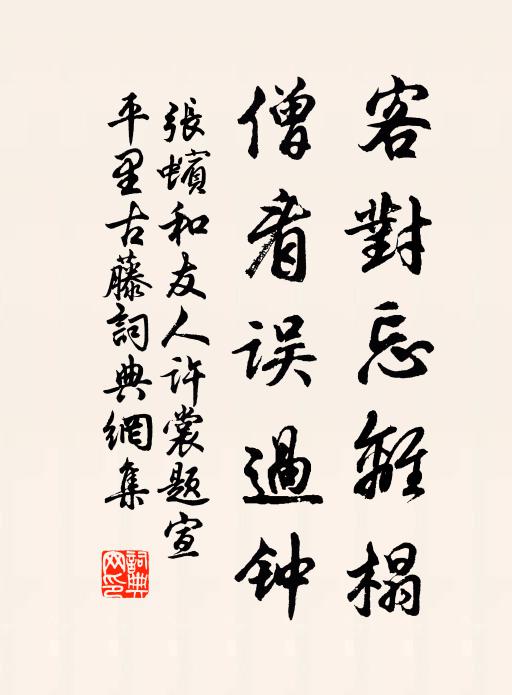 客對忘離榻
僧看误過钟
張蠙和友人許裳题宣
平里古藤詞典網集
詞典网印